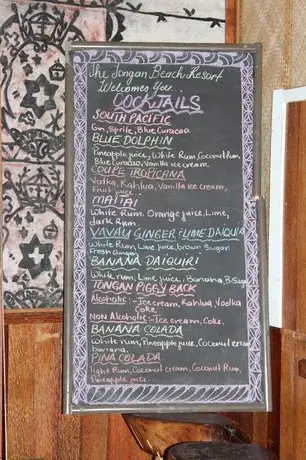 The Tongan Beach Resort
Welcomes You
COCKTAILS
SOUTH PACIFIC
Gin, Sprite, Blue Curacao.
BLUE DOLPHIN
Pineapple juice, White Rum, Coconut Rum,
Blue Curacao, Vanilla ice cream.
COUPE TROPICANA
Vodka, Kahlua, Vanilla ice cream,
Fruit juice
MAITAI
White Rum. Orange juice, Lime,
dark Rum.
VAVAU GINGER & LIME DAIQUIRI
White Rum, Lime juice, brown Sugar
Fresh Ginger
BANANA DAIQUIRI
White rum, Lime juice, Banana, B.Sugar
TONGAN PIGGY BACK
Alcoholic:- Ice cream, Kahlua, Vodka
Coke.
NON Alcoholic:- Ice cream, Coke.
BANANA COLADA
White rum, Pineapple juice, Coconut cream
banana.
PINA COLADA
light Rum, Coconut cream, Coconut Rum,
Pineapple juice.